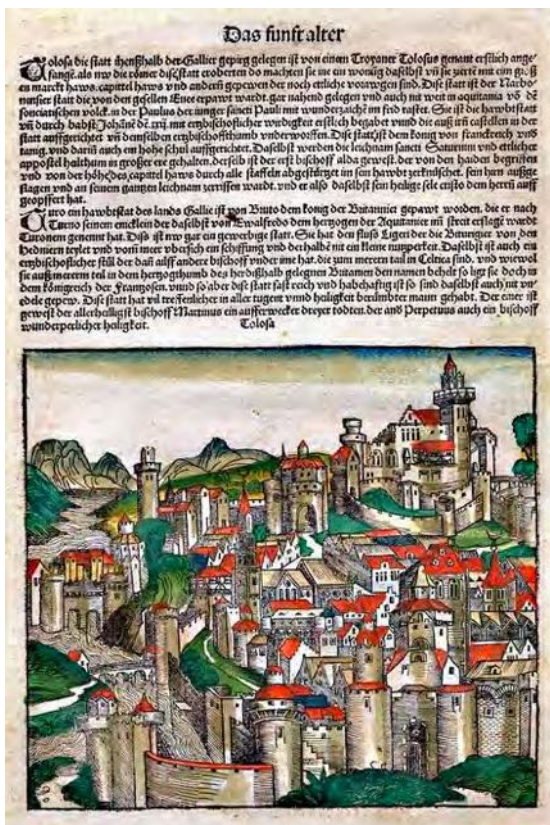 Das funft alter
Tolosa die statt ihenßhalb der Gallier gepirg gelegen ist von einem Troyaner Tolosus genant erstlich ange
fangē. als nw die römer dise statt eroberten do machten sie ine ein wonūg daselbst vñ sie zierte mit ein
en marckt haws. capittel haws vnd andern gepewen der noch ettliche vorawgen sind. Dise statt ist der Narbo
nensier statt die von den gesellen Enee erpawt wardt. gar nahend gelegen vnd auch nit weit in aquitania vō dē
sonciatischen volck. in der Paulus der iunger sancti Pauli mit wunderzaichē im frid rastet. Sie ist die hawbtstatt
vñ durch babst Johānē dē .xxij. mit ertzbischoflicher wirdigkeit erstlich begabet vnnd die auß irn castellen in der
statt auffgerichtet vñ demselben ertzbischoffthumb vnderworffen. Dise statt ist dem konig von franckreich vnd
tanig. vnd darin auch ein hohe schul auffgerichtet. Daselbst werden die leichnam sancti Saturnini vnd ettlicher
appostel haltthum in grosser ere gehalten. derselb ist der erst bischoff alda gewest. der von den haiden begriffen
vnd von der höhe des capittel haws durch alle staffeln abgestürtzt im sein hawbt zerknüschet. sein hirn außge
slagen vnd an seinem gantzen leichnam zerrissen wardt. vnd er also daselbst sein heilige sele cristo dem herrn auff
geopffert hat.
Turo ein hawbtstat des lands Gallie ist von Bruto dem konig der Britannier gepawt worden. die er nach
Turno seinem enicklein der daselbst von Ewalfredo dem hertzogen der Aquitanier im streit erslagē wardt
Turonem genennt hat. Dise ist nw gar ein gewerbige statt. Sie hat den fluss Ligeri der die Biturigier von den
Hedniern teylet vnd vom meer vbersich ein schiffung vnd derhalbē nit ein kleine nutzperkeit. Daselbst ist auch ein
ertzbischoflicher stůl der dañ ailff andere bischoff vnder ime hat. die zum merern tail in Celtica sind. vnd wiewol
sie auß mererm teil in dem hertzogthumb des herdißhalb gelegnen Britanien den namen behelt so ligt sie doch in
dem königreich der Frantzosen. vnnd so aber dise statt fast reich vnd habehaftig ist so sind daselbst auch nit vn
edele gepew. Dise statt hat vil treffenlicher in aller tugent vnnd heiligkeit berümbter mann gehabt. Der einer ist
gewest der allerheiligst bischoff Martinus ein aufferwecker dreyer todten. der and Perpetuus auch ein bischoff
wunderperlicher heiligkeit.
Tolosa